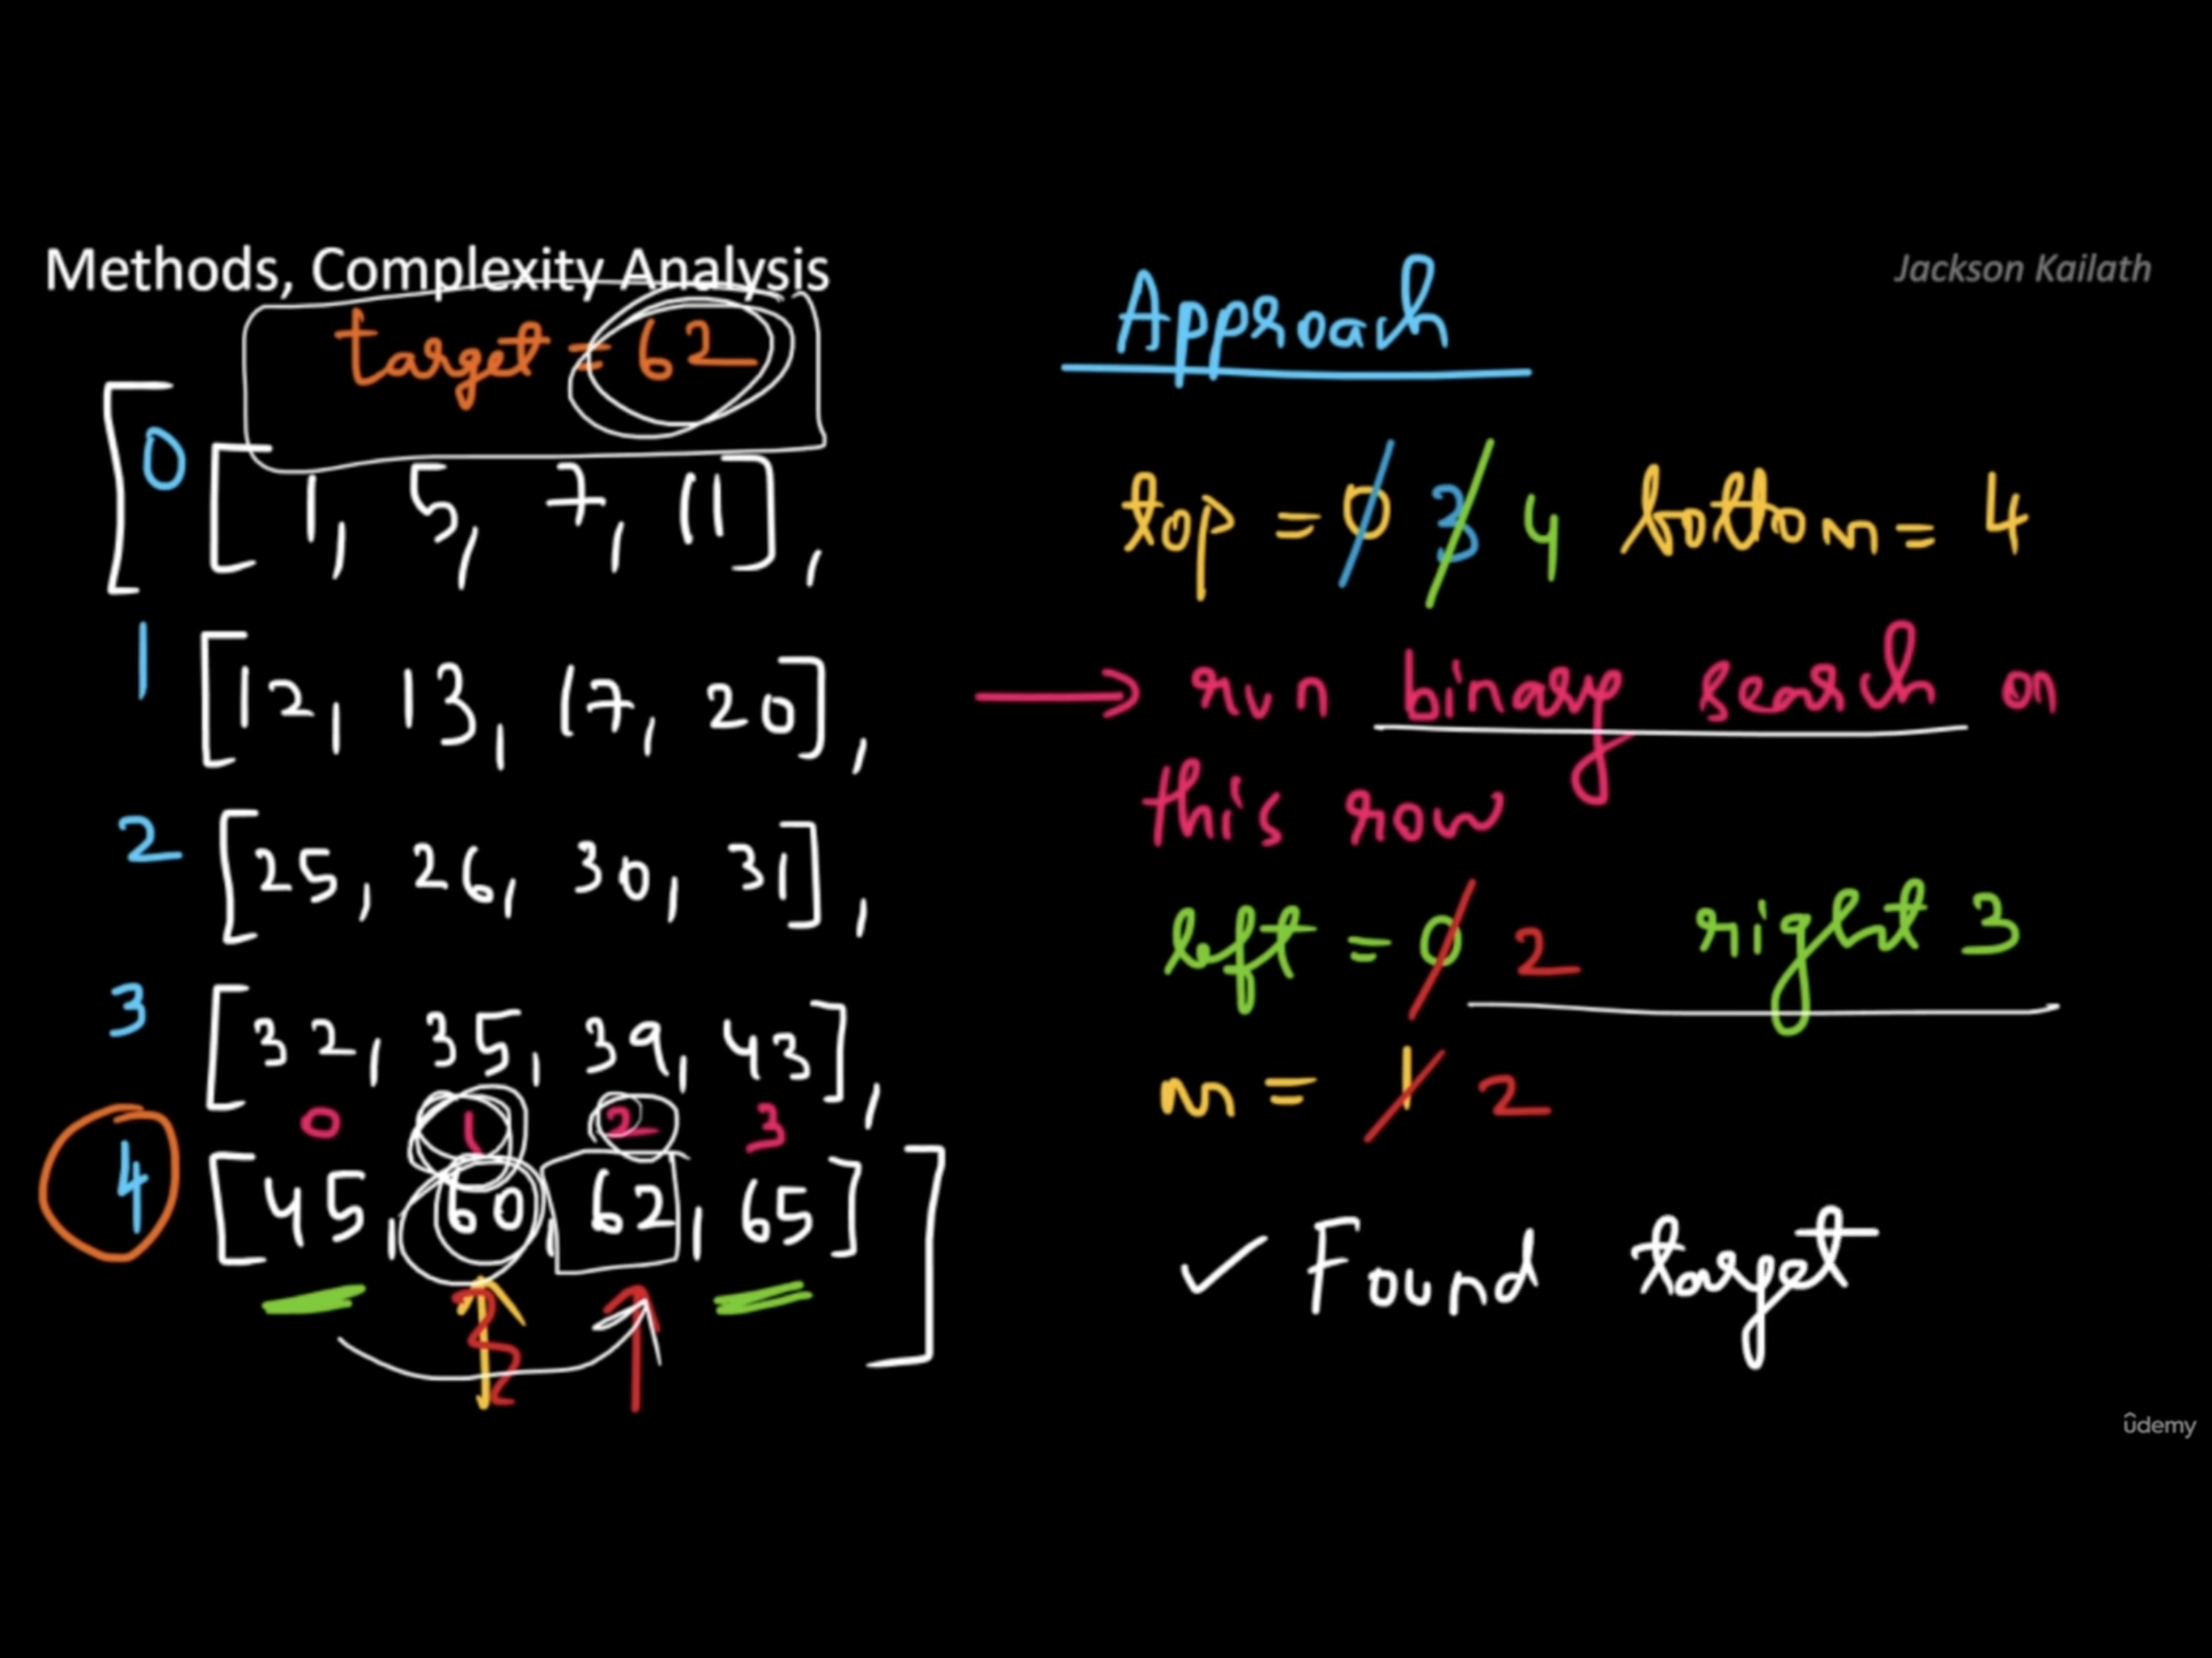 Methods, Complexity Analysis
Jackson Kailath
target = 62
0 [[1, 5, 7, 11],
1 [12, 13, 17, 20],
2 [25, 26, 30, 31],
3 [32, 35, 39, 43],
0 1 2 3
4 [45, 60, 62, 65]]
Approach
top = 0 3 4 bottom = 4
→ run binary search on
this row
left = 0 2 right 3
m = 1 2
✓ Found target
ûdemy